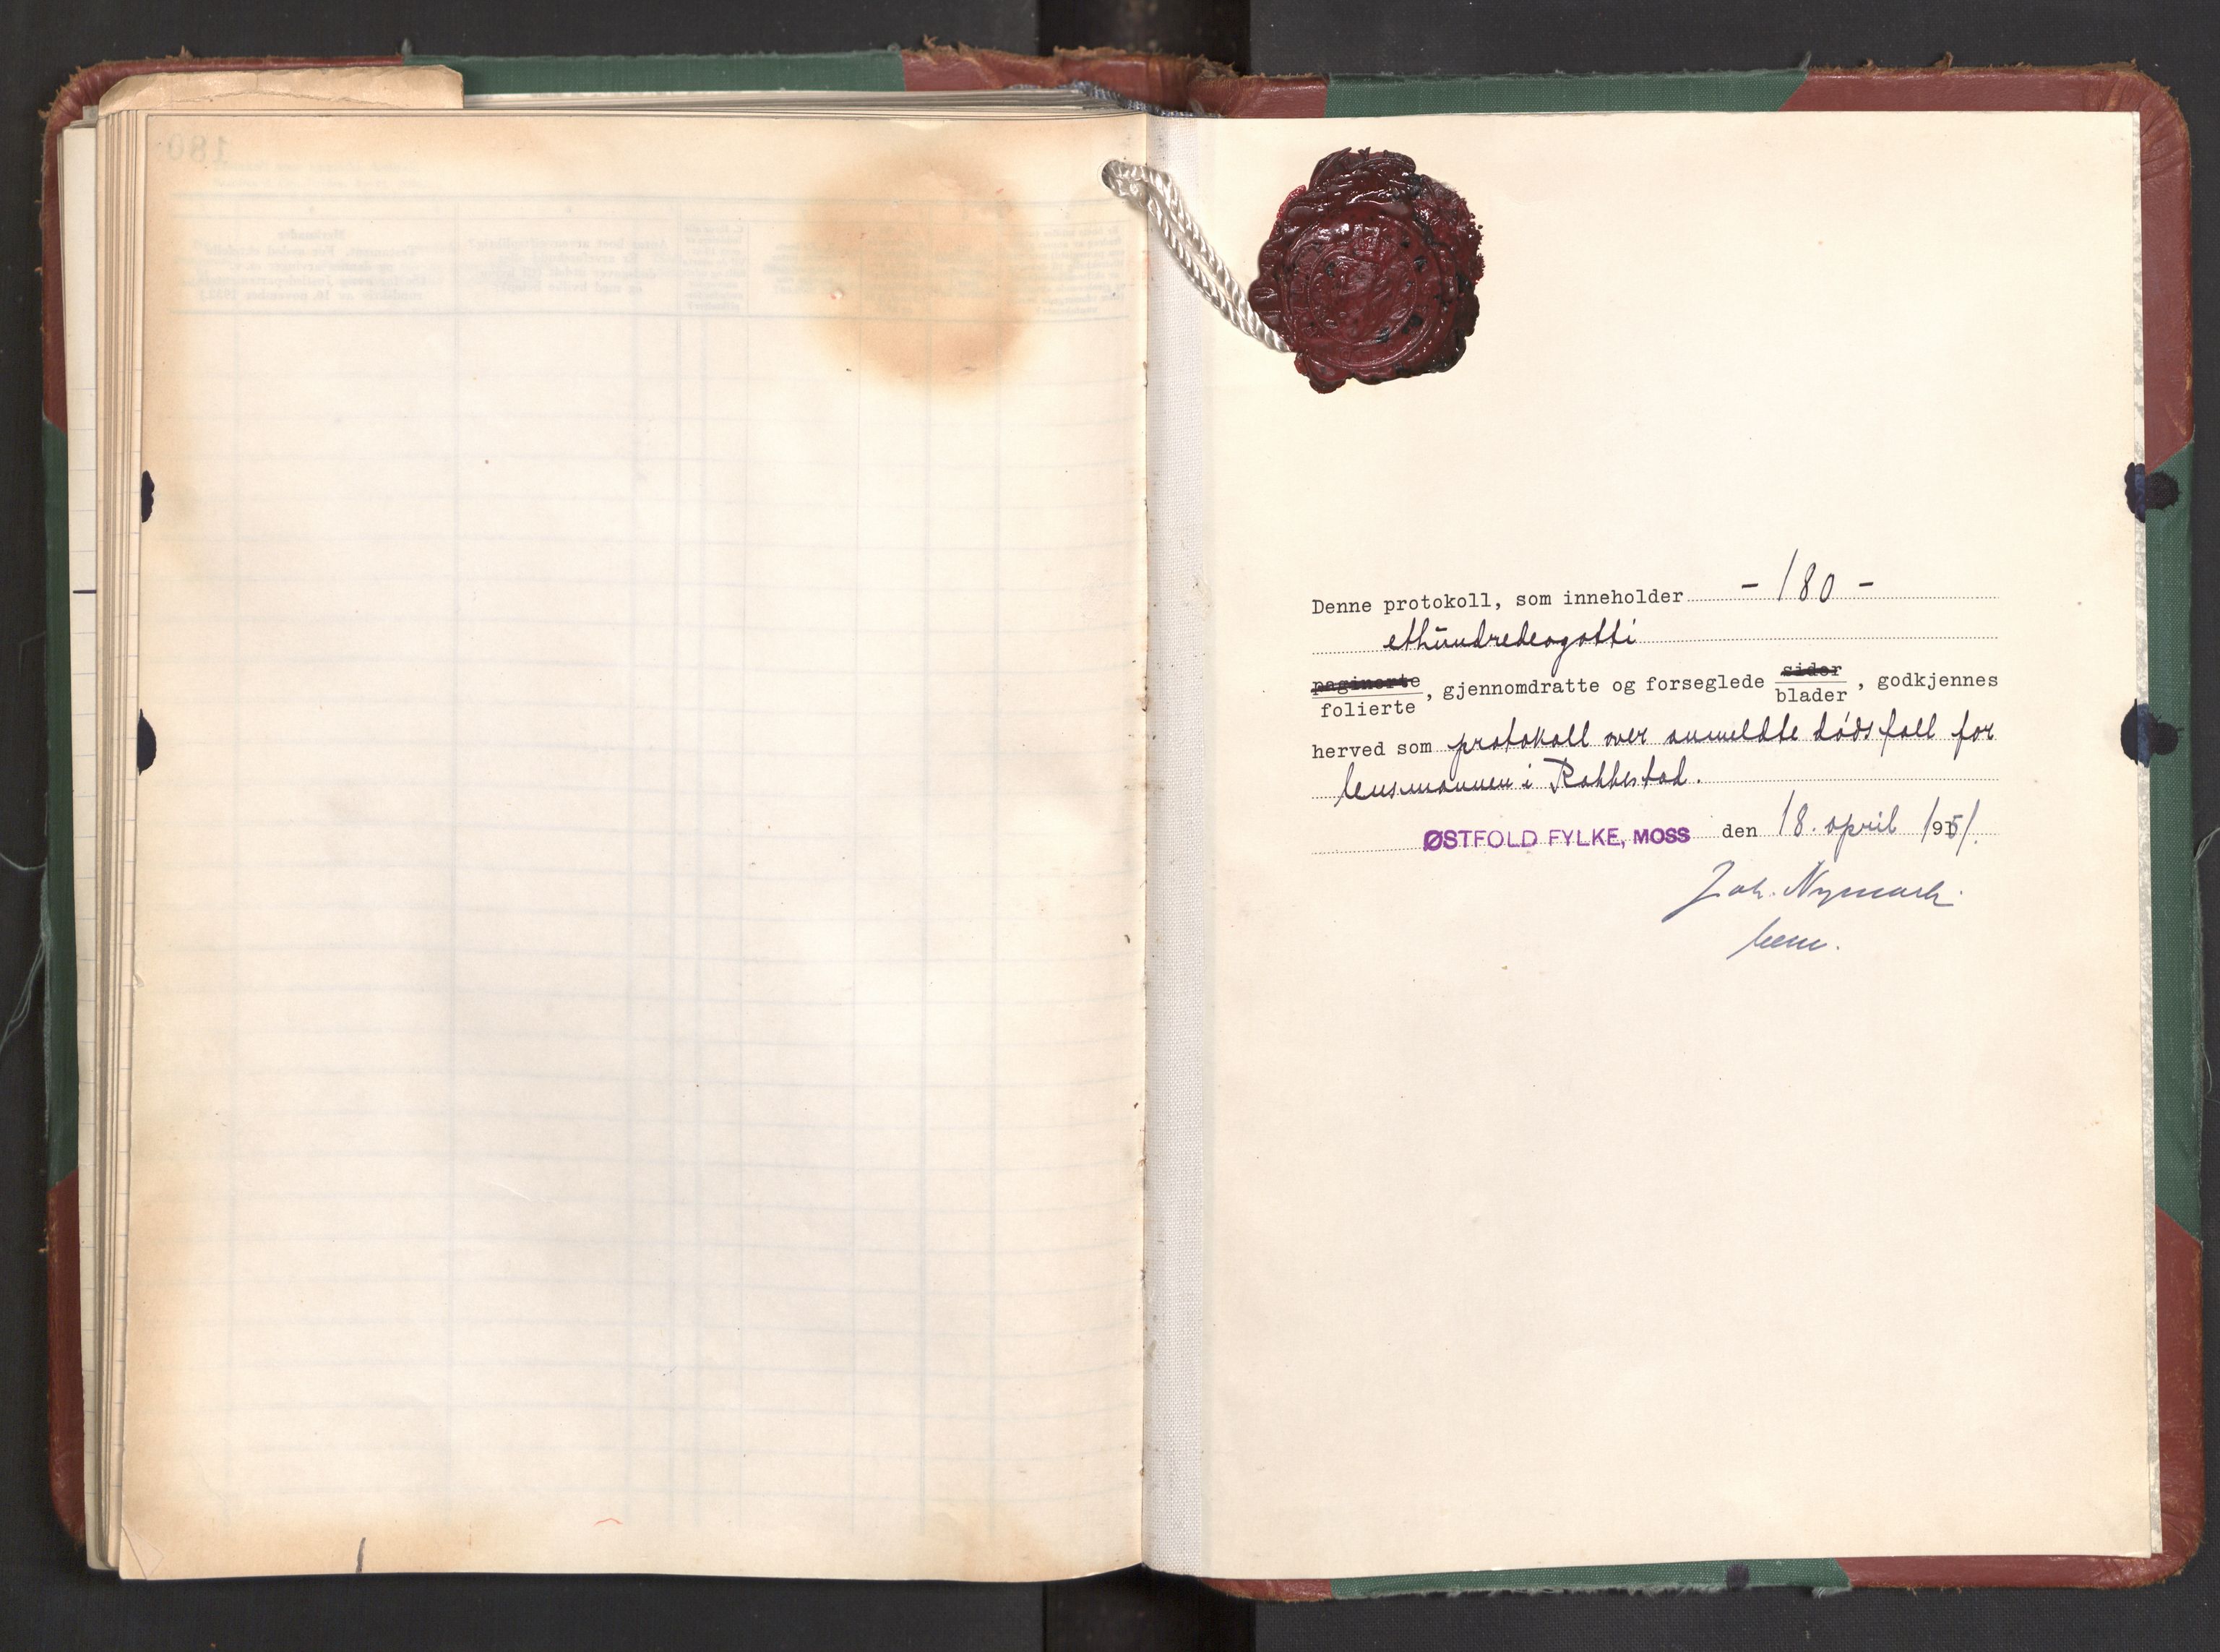 Denne protokoll, som inneholder - 180 -
ethundredeogotti
paginerte / folierte, gjennomdratte og forseglede sider / blader, godkjennes
herved som protokoll over anmeldte dødsfall for
lensmannen i Rakkestad.
ØSTFOLD FYLKE, MOSS den 18. april 1951.
Joh. Nymark
180